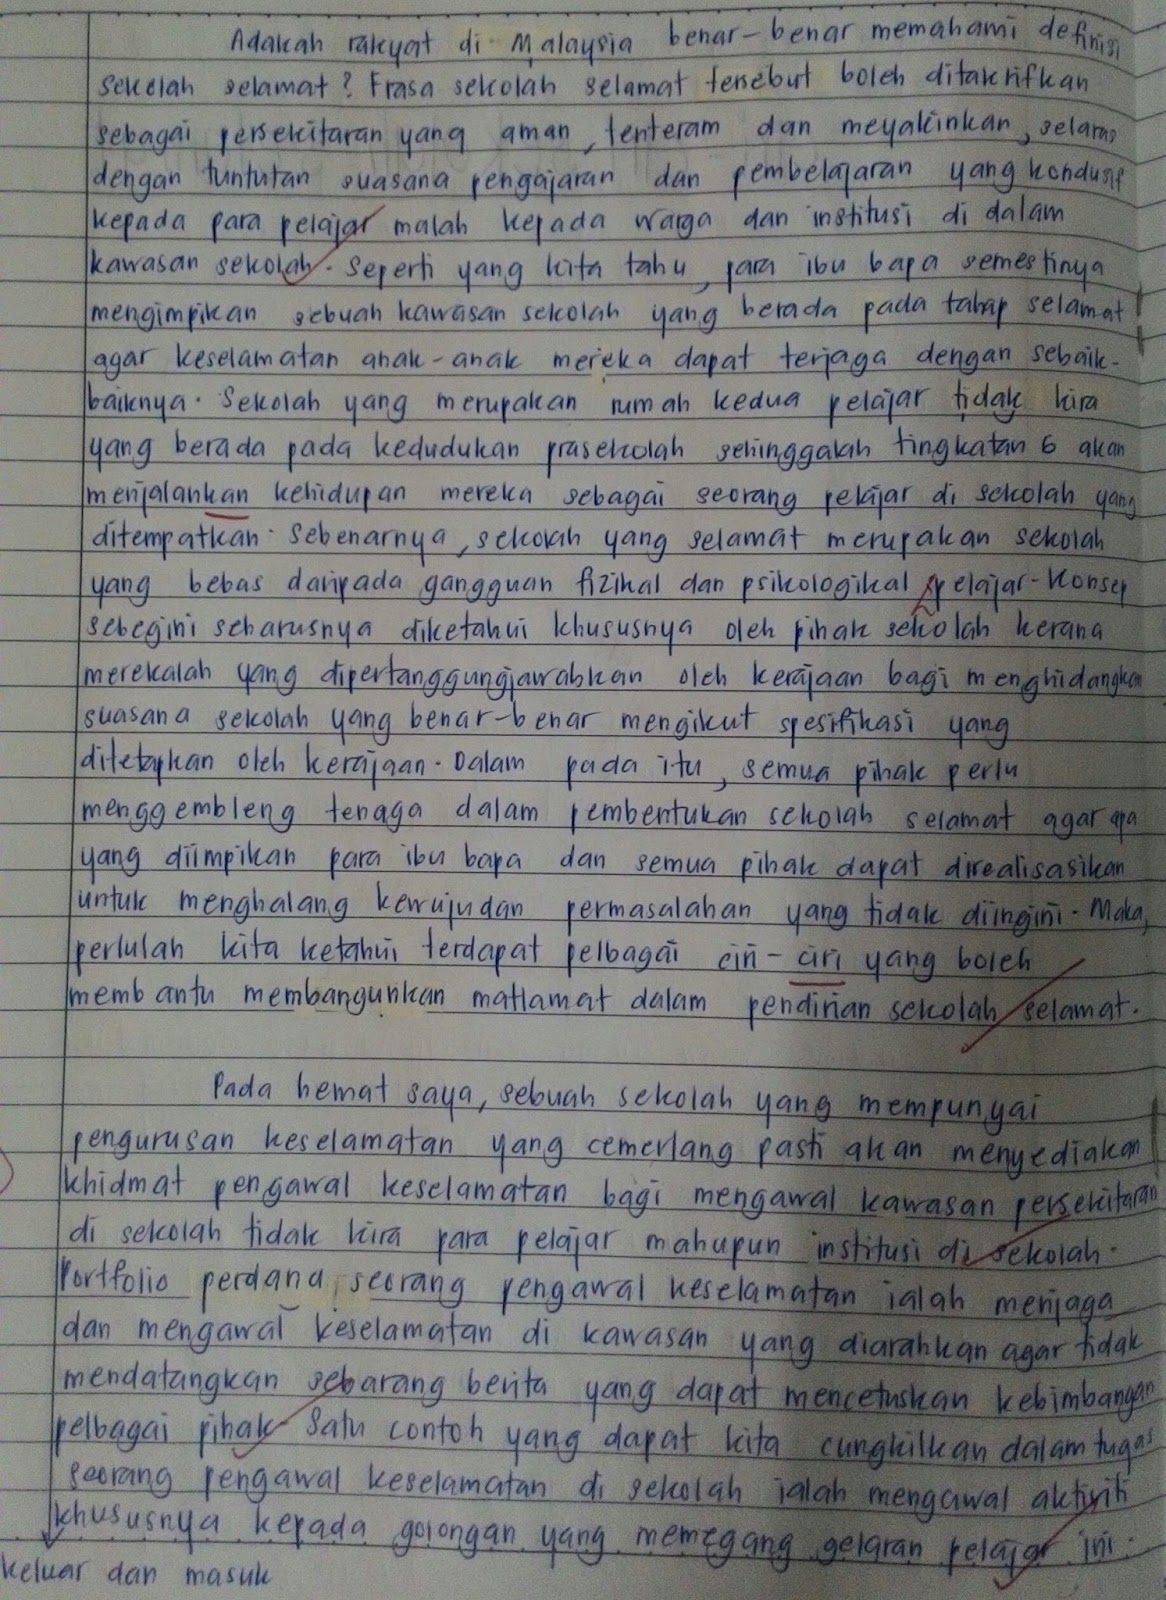 Adakah rakyat di Malaysia benar-benar memahami definisi
sekolah selamat? Frasa sekolah selamat tersebut boleh ditakrifkan
sebagai persekitaran yang aman, tenteram dan meyakinkan, selaras
dengan tuntutan suasana pengajaran dan pembelajaran yang kondusif
kepada para pelajar malah kepada warga dan institusi di dalam
kawasan sekolah. Seperti yang kita tahu, para ibu bapa semestinya
mengimpikan sebuah kawasan sekolah yang berada pada tahap selamat
agar keselamatan anak-anak mereka dapat terjaga dengan sebaik-
baiknya. Sekolah yang merupakan rumah kedua pelajar tidak kira
yang berada pada kedudukan prasekolah sehinggalah tingkatan 6 akan
menjalankan kehidupan mereka sebagai seorang pelajar di sekolah yang
ditempatkan. Sebenarnya, sekolah yang selamat merupakan sekolah
yang bebas daripada gangguan fizikal dan psikologikal pelajar. Konsep
sebegini seharusnya diketahui khususnya oleh pihak sekolah kerana
merekalah yang dipertanggungjawabkan oleh kerajaan bagi menghidangkan
suasana sekolah yang benar-benar mengikut spesifikasi yang
ditetapkan oleh kerajaan. Dalam pada itu, semua pihak perlu
menggembleng tenaga dalam pembentukan sekolah selamat agar apa
yang diimpikan para ibu bapa dan semua pihak dapat direalisasikan
untuk menghalang kewujudan permasalahan yang tidak diingini. Maka,
perlulah kita ketahui terdapat pelbagai ciri-ciri yang boleh
membantu membangunkan matlamat dalam pendirian sekolah selamat.
Pada hemat saya, sebuah sekolah yang mempunyai
pengurusan keselamatan yang cemerlang pasti akan menyediakan
khidmat pengawal keselamatan bagi mengawal kawasan persekitaran
di sekolah tidak kira para pelajar mahupun institusi di sekolah.
Portfolio perdana seorang pengawal keselamatan ialah menjaga
dan mengawal keselamatan di kawasan yang diarahkan agar tidak
mendatangkan sebarang berita yang dapat mencetuskan kebimbangan
pelbagai pihak. Satu contoh yang dapat kita cungkilkan dalam tugas
seorang pengawal keselamatan di sekolah ialah mengawal aktiviti
khususnya kepada golongan yang memegang gelaran pelajar ini.
keluar dan masuk